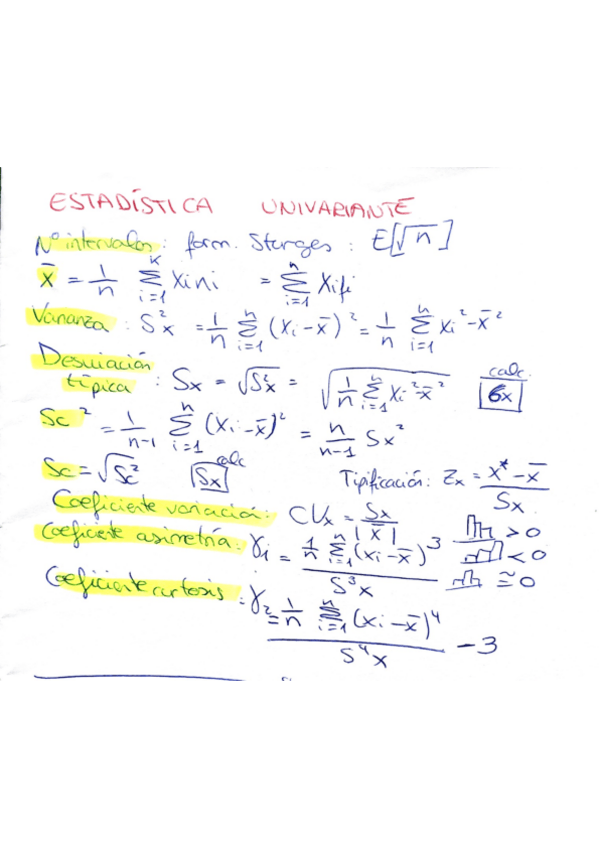 ESTADÍSTICA UNIVARIANTE
Nº intervalos : form. Sturges : E[√n]
x̄ = 1/n Σ_{i=1}^{K} xi ni = Σ_{i=1}^{n} xi fi
Varianza : S²x = 1/n Σ_{i=1}^{n} (xi - x̄)² = 1/n Σ_{i=1}^{n} xi² - x̄²
Desviación típica : Sx = √S²x = √(1/n Σ_{i=1}^{n} xi² - x̄²) calc 6x
Sc² = 1/(n-1) Σ_{i=1}^{n} (xi - x̄)² = n/(n-1) Sx²
Sc = √Sc² calc Sx Tipificación : Zx = (x* - x̄)/Sx
Coeficiente variación : CVx = Sx/|x̄|
Coeficiente asimetría : γ1 = (1/n Σ_{i=1}^{n} (xi - x̄)³)/S³x > 0
< 0
≅ 0
Coeficiente curtosis : γ2 = (1/n Σ_{i=1}^{n} (xi - x̄)⁴)/S⁴x - 3